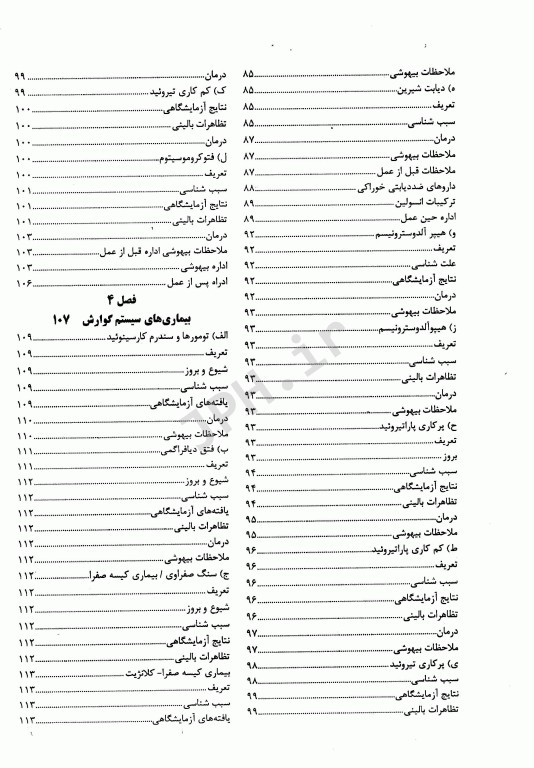 ملاحظات بیهوشی ۸۵
ه) دیابت شیرین ۸۵
تعریف ۸۵
سبب شناسی ۸۵
درمان ۸۷
ملاحظات بیهوشی ۸۷
ملاحظات قبل از عمل ۸۷
داروهای ضددیابتی خوراکی ۸۸
ترکیبات انسولین ۸۹
اداره حین عمل ۸۹
و) هیپر آلدوسترونیسم ۹۲
تعریف ۹۲
علت شناسی ۹۲
نتایج آزمایشگاهی ۹۲
درمان ۹۲
ملاحظات بیهوشی ۹۳
ز) هیپوآلدوسترونیسم ۹۳
تعریف ۹۳
سبب شناسی ۹۳
تظاهرات بالینی ۹۳
درمان ۹۳
ملاحظات بیهوشی ۹۳
ح) پرکاری پاراتیروئید ۹۳
تعریف ۹۳
بروز ۹۳
سبب شناسی ۹۴
نتایج آزمایشگاهی ۹۴
تظاهرات بالینی ۹۴
درمان ۹۵
ملاحظات بیهوشی ۹۵
ط) کم کاری پاراتیروئید ۹۶
تعریف ۹۶
سبب شناسی ۹۶
نتایج آزمایشگاهی ۹۶
تظاهرات بالینی ۹۶
درمان ۹۷
ملاحظات بیهوشی ۹۷
ی) پرکاری تیروئید ۹۸
سبب شناسی ۹۸
نتایج آزمایشگاهی ۹۹
تظاهرات بالینی ۹۹
درمان ۹۹
ک) کم کاری تیروئید ۹۹
نتایج آزمایشگاهی ۱۰۰
تظاهرات بالینی ۱۰۰
درمان ۱۰۰
ل) فتوکروموسیتوم ۱۰۰
تعریف ۱۰۰
سبب شناسی ۱۰۱
نتایج آزمایشگاهی ۱۰۱
تظاهرات بالینی ۱۰۱
درمان ۱۰۳
ملاحظات بیهوشی اداره قبل از عمل ۱۰۳
اداره بیهوشی ۱۰۳
ادراه پس از عمل ۱۰۶
فصل ۴
بیماری‌های سیستم گوارش ۱۰۷
الف) تومورها و سندرم کارسینوئید ۱۰۹
تعریف ۱۰۹
شیوع و بروز ۱۰۹
سبب شناسی ۱۰۹
یافته‌های آزمایشگاهی ۱۰۹
درمان ۱۱۰
ملاحظات بیهوشی ۱۱۰
ب) فتق دیافراگمی ۱۱۱
تعریف ۱۱۱
شیوع و بروز ۱۱۲
سبب شناسی ۱۱۲
یافته‌های آزمایشگاهی ۱۱۲
تظاهرات بالینی ۱۱۲
درمان ۱۱۲
ملاحظات بیهوشی ۱۱۲
ج) سنگ صفراوی / بیماری کیسه صفرا ۱۱۲
تعریف ۱۱۲
شیوع و بروز ۱۱۲
سبب شناسی ۱۱۲
نتایج آزمایشگاهی ۱۱۲
تظاهرات بالینی ۱۱۲
بیماری کیسه صفرا- کلانژیت ۱۱۳
تعریف ۱۱۳
سبب شناسی ۱۱۳
یافته‌های آزمایشگاهی ۱۱۳
JPH.ir